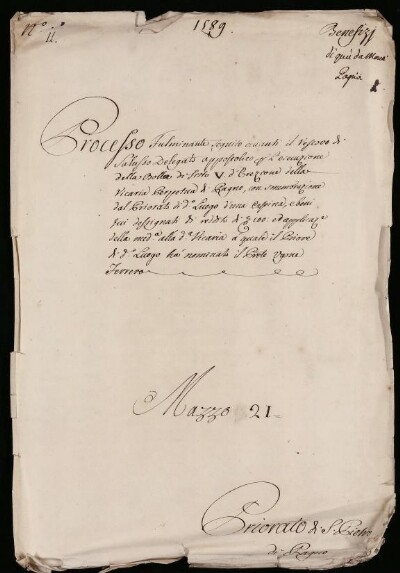 N.º 11.
1589.
Benefizj
di quà da Monti
Processo Fulminante seguito avanti il Vescovo di
Saluzzo Delegato appostolico p l'esecuzione
della Bolla di Sisto V. d'Erezione della
Vicaria Perpetua di Pagno, con smembrazione
dal Priorato di d.º Luogo d'una Cassina, e beni
ivi dessignati di reddito di 100. ed applicaz.e
della med.ª alla d.ª Vicaria a quale il Priore
di d.º Luogo hà nominato il Prete
Ferrero
Mazzo 21
Priorato di S. Pietro
di Pagno